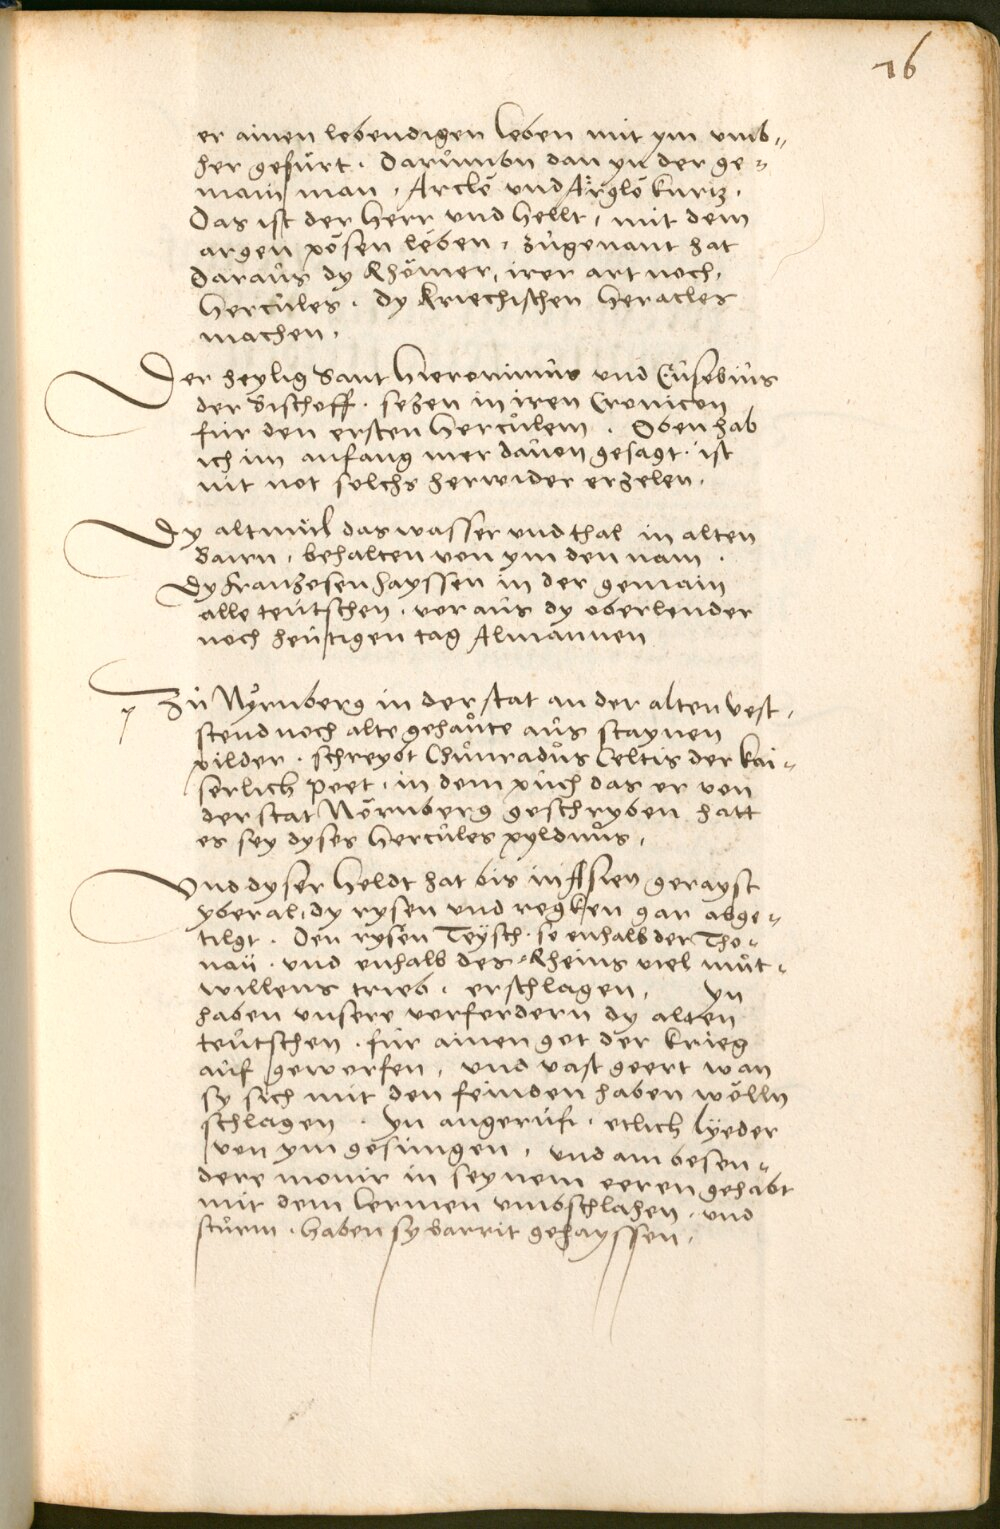 76
er ainen lebendigen Leben mit ym vmb„
her gefürt . Darůmbn dan yn der ge„
main man , Arclē vnd Ärglē kurtz .
Das ist der Herr vnd Hellt , mit dem
argen pösen leben , zůgenant hat
Daraůs dy Rhömer , irer art noch ,
Hercůles . dy kriechischen Heracles
machen ,
Der heylig Sant Hieronimůs vnd Eůsebiůs
der Bischoff . sezen in iren Cronicon
für den ersten Hercůlem . Oben hab
ich im anfang mer dauon gesagt . ist
nit not solchs herwider erzelen .
Dy altmül das wasser vnd thal in alten
Bairn , behalten von ym den nam .
Dy Franzesen hayssen in der gemain
alle teütschen , voraůs dy oberlender
noch heütigen tag Almannen
Zů Nÿrnberg in der stat an der alten Vest ,
stend noch alte gehaůte aůs staynen
pilder . schreybt Chůnradůs Celtis der kai„
serlich Poet , in dem půch das er von
der stat Nörnberg geschryben hatt
es sey dyses Hercůles pyldnůs ,
Vnd dyser Heldt hat bis in Asien gerayst
yberal , dy rysen vnd regken gar abge„
tilgt . Den rysen Teÿsch . se enhalb der Tho„
naü . vnd enhalb des Rheins viel můt„
willens trieb , erschlagen , yn
haben vnsere vorfordern dy alten
teůtschen . für ainen got der krieg
aůf geworfen , vnd vast geert wan
sy sich mit den feinden haben wölln
schlagen . yn angerůft , etlich lÿeder
von ym gesůngen , vnd am beson„
dere monir in seynem eeren gehabt
mit dem lermen vmbschlahen . vnd
stůrm . haben sy barrit gehayssen .